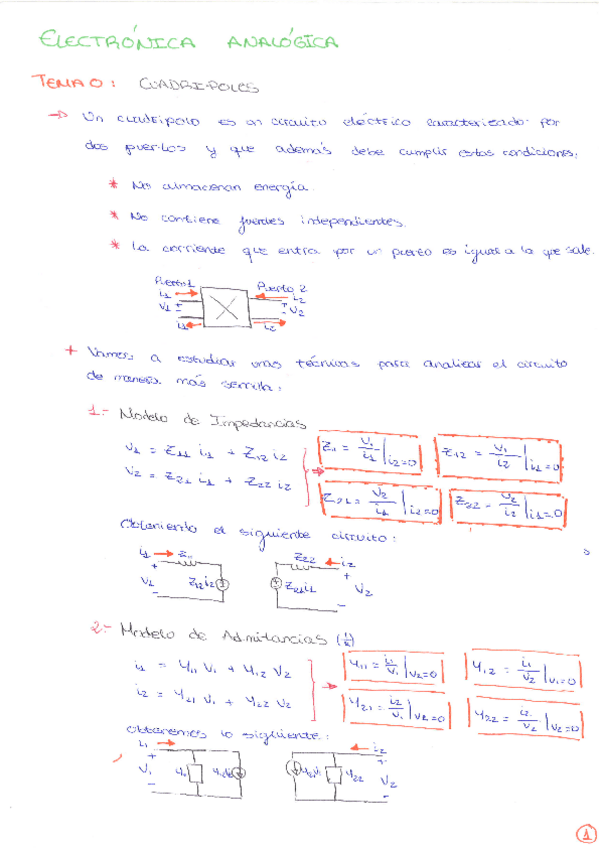 ELECTRÓNICA ANALÓGICA
TEMA 0: CUADRIPOLOS
→ Un cuadripolo es un circuito eléctrico caracterizado por
dos puertos y que además debe cumplir estas condiciones:
* No almacenan energía.
* No contiene fuentes independientes.
* La corriente que entra por un puerto es igual a la que sale.
Puerto 1 Puerto 2
i1 i2
V1 + - + - V2
i1 i2
+ Vamos a estudiar unas técnicas para analizar el circuito
de manera más sencilla:
1.- Modelo de Impedancias
V1 = Z11 i1 + Z12 i2
V2 = Z21 i1 + Z22 i2
Z1 = V1/i1 | i2=0
Z12 = V1/i2 | i1=0
Z21 = V2/i1 | i2=0
Z22 = V2/i2 | i1=0
Obteniendo el siguiente circuito:
i1 → Z22 ← i2
+ V1 - Z12 i2 Z21 i1 + V2 -
2.- Modelo de Admitancias
i1 = Y11 V1 + Y12 V2
i2 = Y21 V1 + Y22 V2
Y11 = i1/V1 | V2=0
Y12 = i1/V2 | V1=0
Y21 = i2/V1 | V2=0
Y22 = i2/V2 | V2=0
Obtenemos lo siguiente:
i1 → ← i2
+ V1 - Y22 + V2 -
1